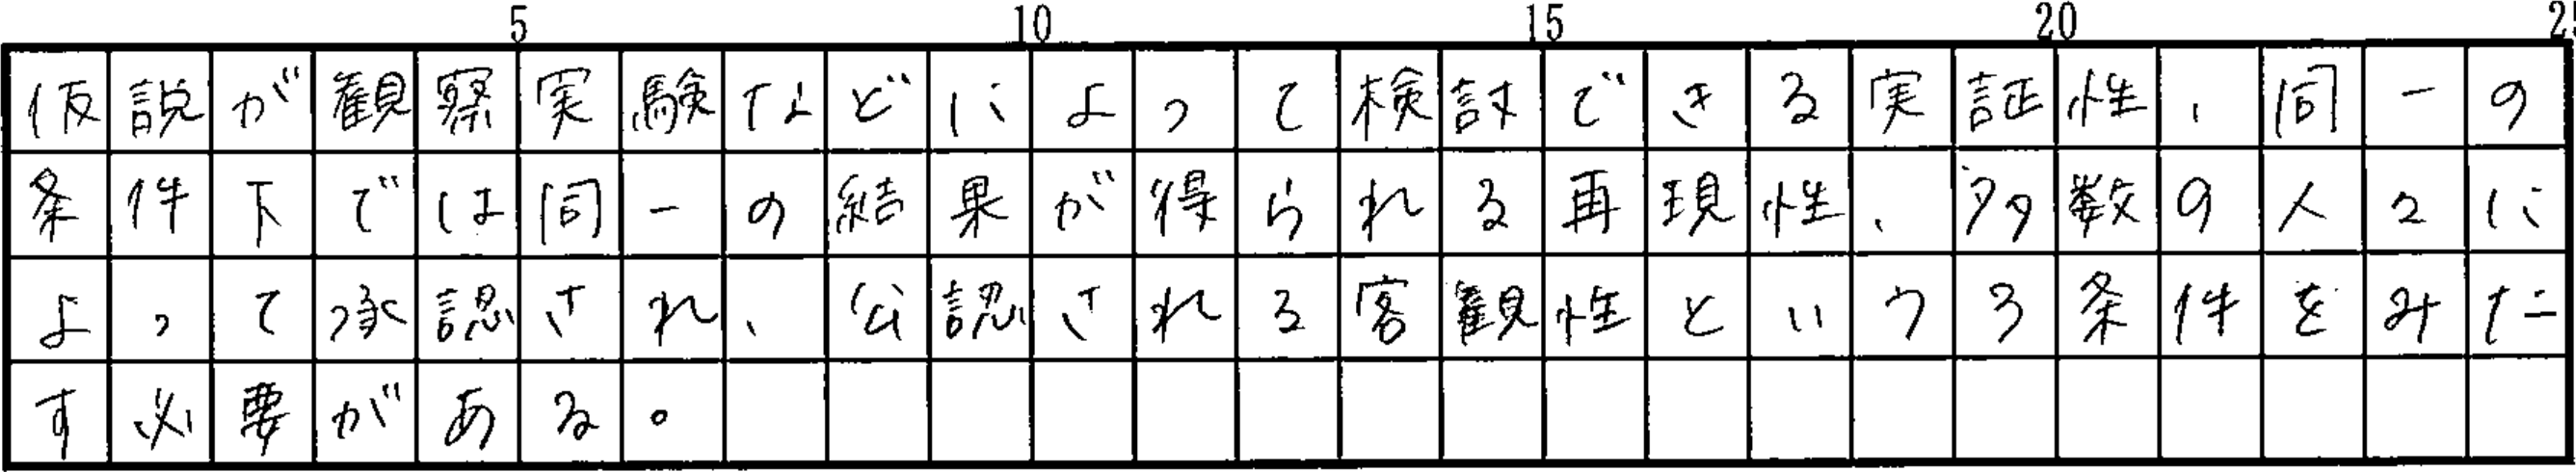 5 10 15 20 2
仮説が観察実験などによって検討できる実証性、同一の
条件下では同一の結果が得られる再現性、多数の人々に
よって承認され、公認される客観性という3条件をみた
す必要がある。